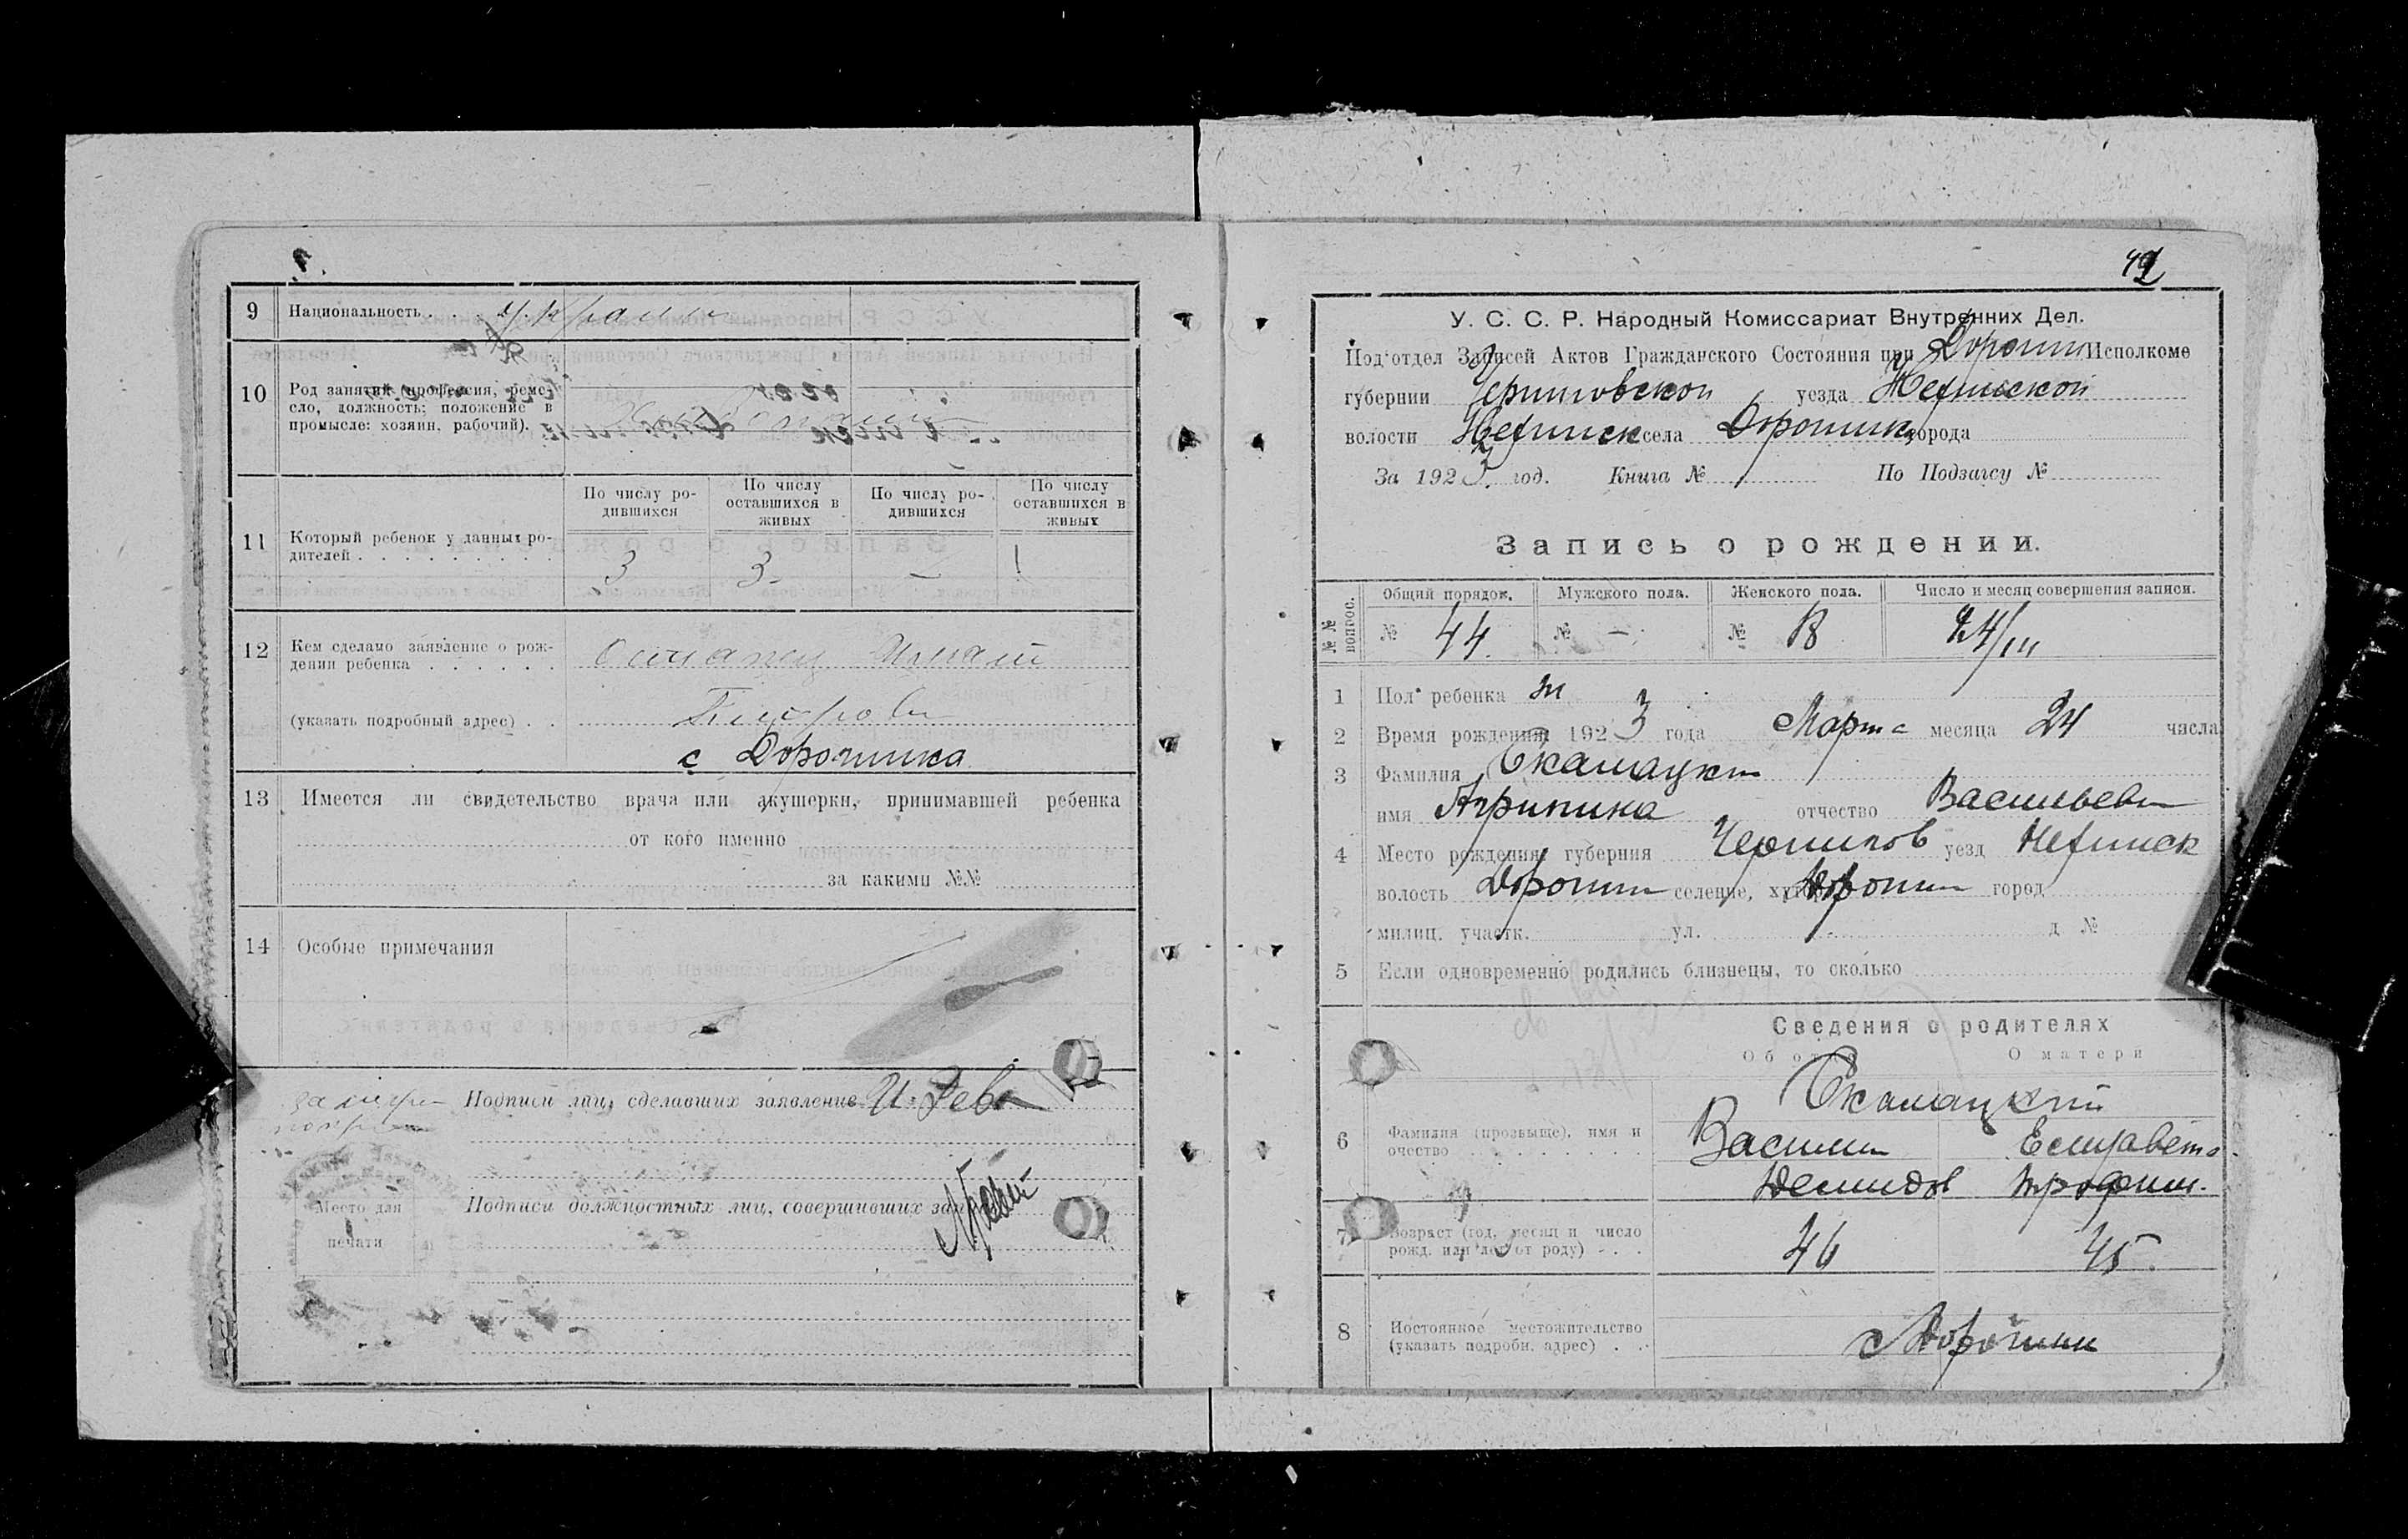 9 Национальность . . . Украин
10 Род занятий, профессия, реме-
сло, должность; положение в
промысле: хозяин, рабочий).
По числу ро-
дившихся
По числу
оставшихся в
живых
По числу ро-
дившихся
По числу
оставшихся в
живых
11 Который ребенок у данных ро-
дителей . . . . . . . . . .
3 3 —
12 Кем сделано заявление о рож-
дении ребенка . . . . . .
(указать подробный адрес) . .
с Дорогинка
13 Имеется ли свидетельство врача или акушерки, принимавшей ребенка
от кого именно
за какими №№
14 Особые примечания
Подписи лиц, сделавших заявление
Подписи должностных лиц, совершивших запись
Место для
печати
42
У. С. С. Р. Народный Комиссариат Внутренних Дел.
Под'отдел Записей Актов Гражданского Состояния при Дорогин Исполкоме
губернии Черниговской уезда Нежинской
волости Нежинск села Дорогинк города
За 1923 год. Книга № По Подзагсу №
Запись о рождении.
№ № вопрос.
Общий порядок. Мужского пола. Женского пола. Число и месяц совершения записи.
№ 44. № — № 18 24/III
1 Пол ребенка ж
2 Время рождения 1923 года Марта месяца 24 числа
3 Фамилия
имя Агрипина отчество Васильевн
4 Место рождения: губерния Чернигов уезд Нежинск
волость Дорогин селение, хутор Дорогин город
милиц. участк. ул. д №
5 Если одновременно родились близнецы, то сколько
Сведения о родителях
Об отце О матери
6 Фамилия (прозвище), имя и
очество . . . . . . . . .
Василий Елизавета
Демидов Трофим.
7 Возраст (год, месяц и число
рожд. или лет от роду) - . .
46 45
8 Постоянное местожительство
(указать подробн. адрес) . .
с Дорогин